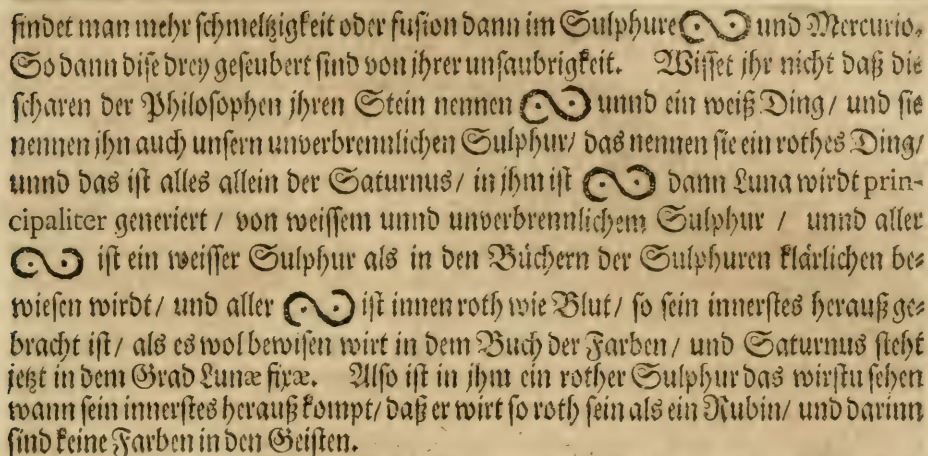 findet man mehr schmeltzigkeit oder fusion dann im Sulphure und Mercurio.
So dann dise drey geseubert sind von jhrer unsaubrigkeit. Wisset jhr nicht daß die
scharen der Philosophen jhren Stein nennen unnd ein weiß Ding/ und sie
nennen jhn auch unsern unverbrennlichen Sulphur/ das nennen sie ein rothes Ding/
unnd das ist alles allein der Saturnus/ in jhm ist dann Luna wirdt prin-
cipaliter generiert / von weissem unnd unverbrennlichem Sulphur / unnd aller
ist ein weisser Sulphur als in den Büchern der Sulphuren klärlichen be-
wiesen wirdt/ und aller ist innen roth wie Blut/ so sein innerstes herauß ge-
bracht ist/ als es wol bewisen wirt in dem Buch der Farben/ und Saturnus steht
jetzt in dem Grad Lunæ fixæ. Also ist in jhm ein rother Sulphur das wirstu sehen
wann sein innerstes herauß kompt/ daß er wirt so roth sein als ein Rubin/ und darinn
sind keine Farben in den Geisten.